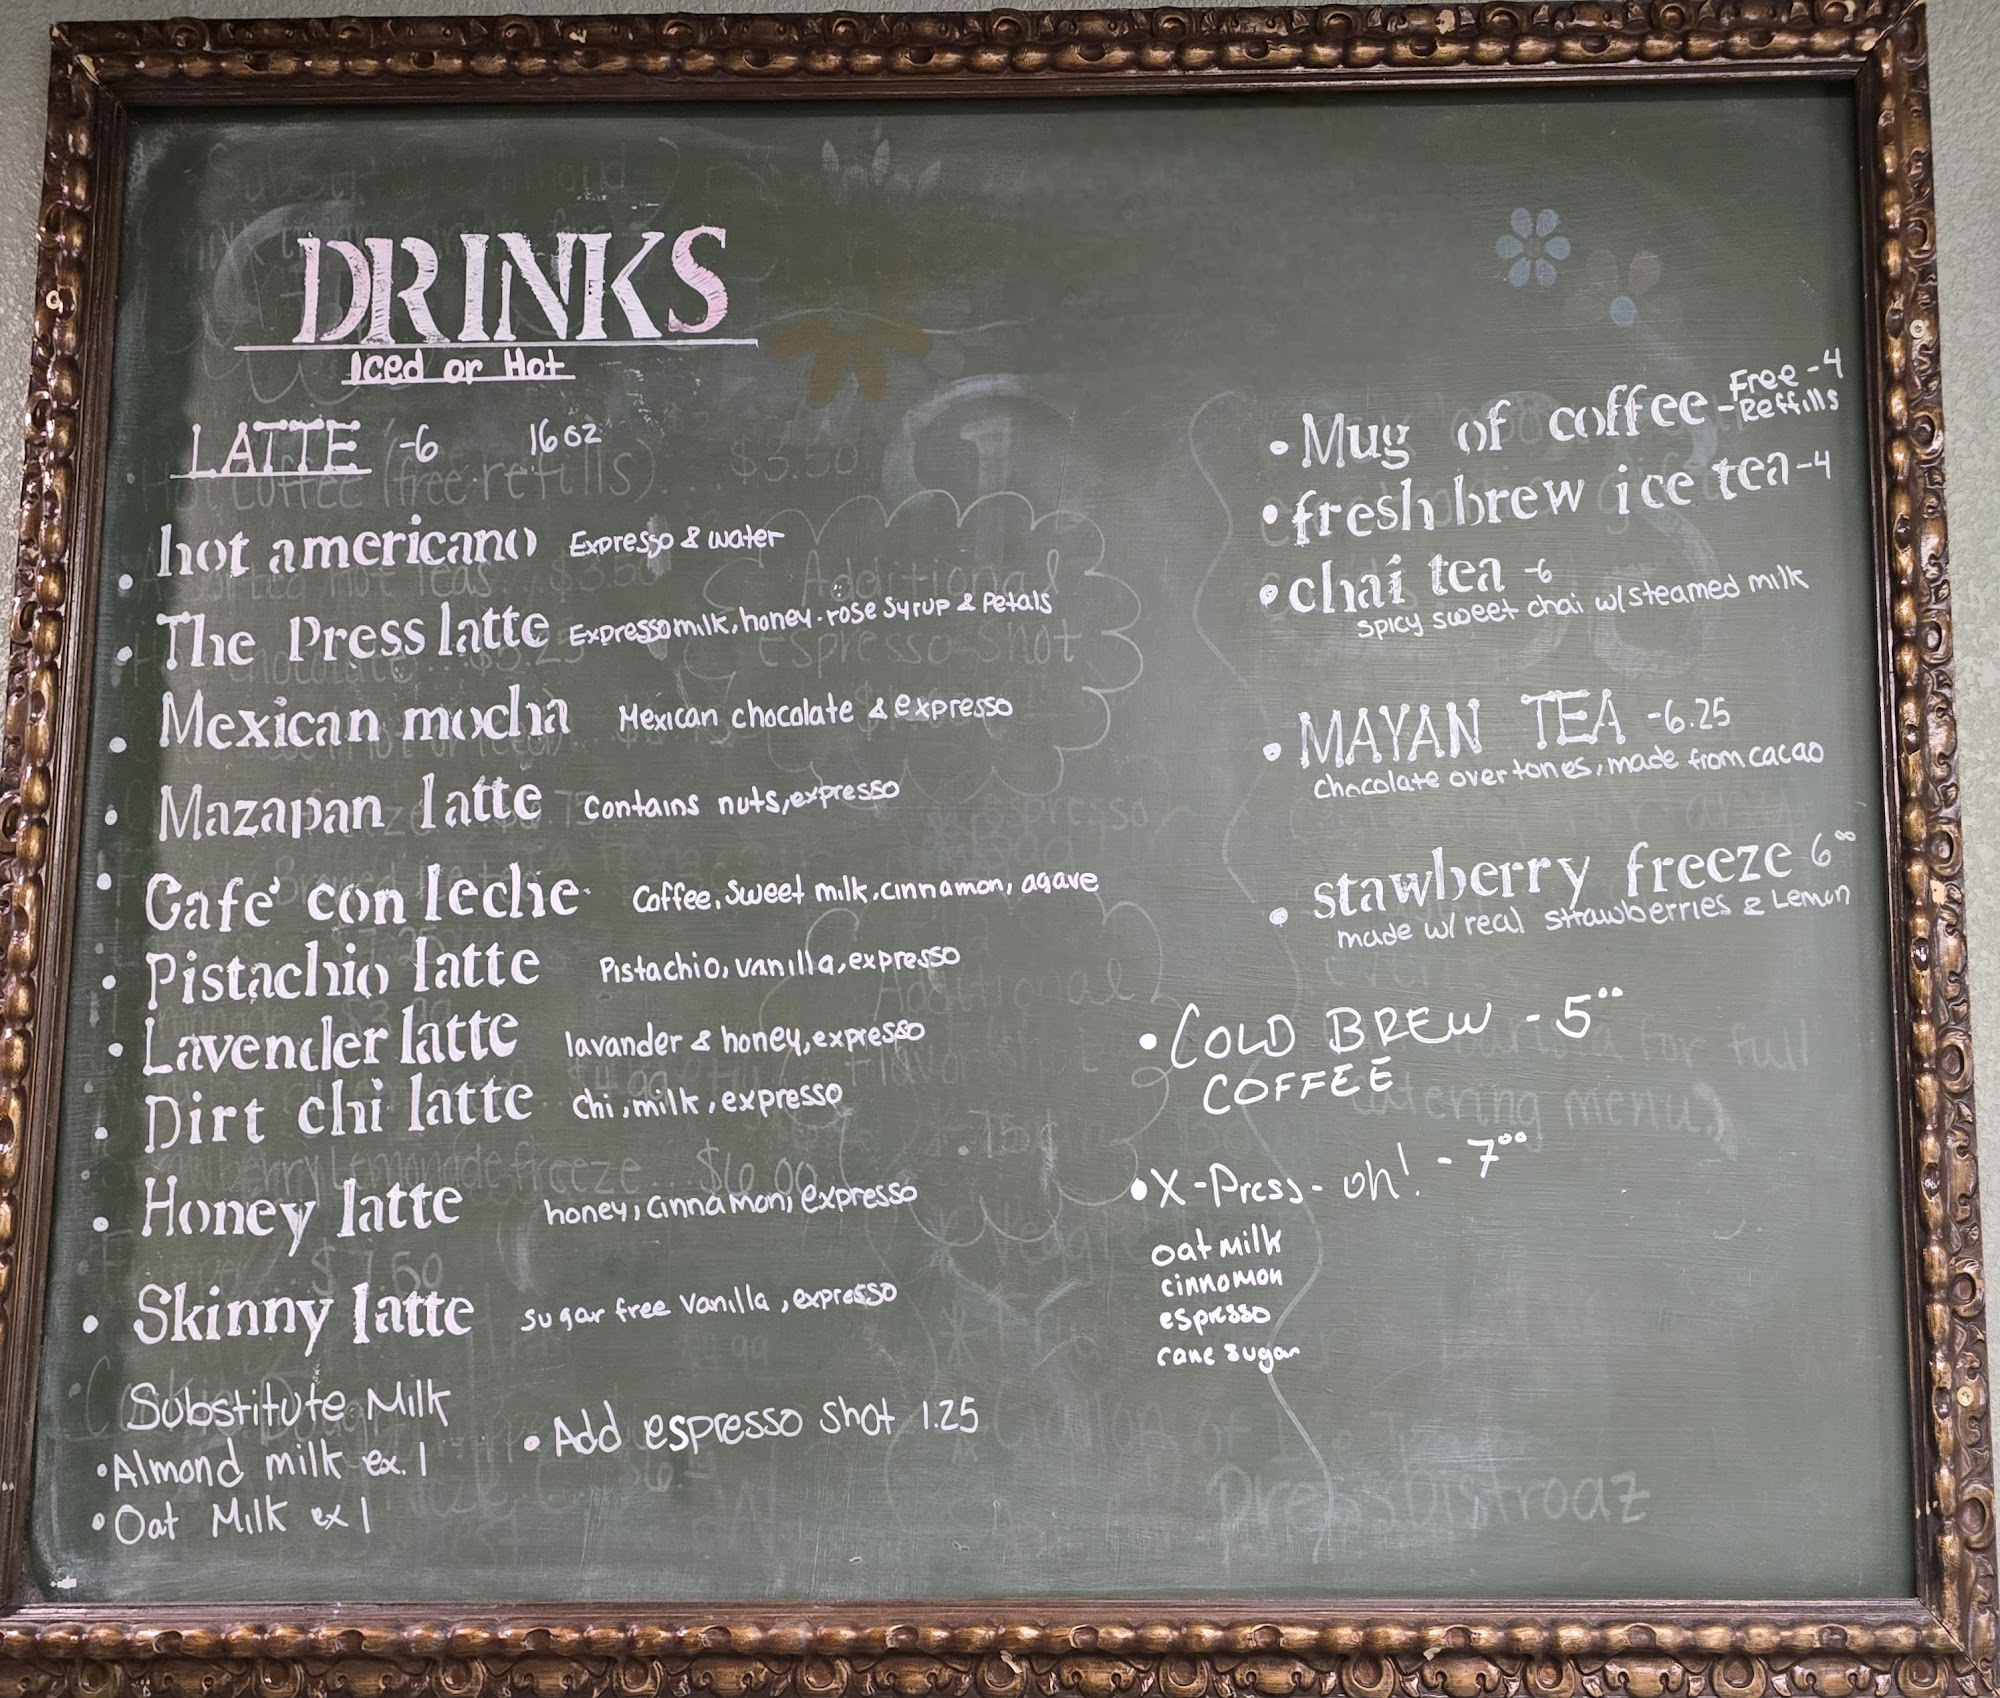 DRINKS
Iced or Hot
LATTE -6 16oz
• hot americano Expresso & water
• The Press latte Expresso milk, honey. rose syrup & petals
• Mexican mocha Mexican chocolate & expresso
• Mazapan latte contains nuts, expresso
• Cafe' con leche Coffee, sweet milk, cinnamon, agave
• Pistachio latte Pistachio, vanilla, expresso
• Lavender latte lavander & honey, expresso
• Dirt chi latte chi, milk, expresso
• Honey latte honey, cinnamon, expresso
• Skinny latte sugar free vanilla, expresso
Substitute Milk
• Almond milk ex. 1
• Oat Milk ex 1
• Add espresso shot 1.25
• Mug of coffee - Free Refills - 4
• fresh brew ice tea - 4
• chai tea - 6
spicy sweet chai w/ steamed milk
• MAYAN TEA - 6.25
chocolate overtones, made from cacao
• stawberry freeze 6.00
made w/ real strawberries & Lemon
• COLD BREW - 5.00
COFFEE
• X-Press-oh! - 7.00
oat milk
cinnomon
espresso
cane sugar
Additional
espresso shot
Additional
catering menu)
pressbistroaz